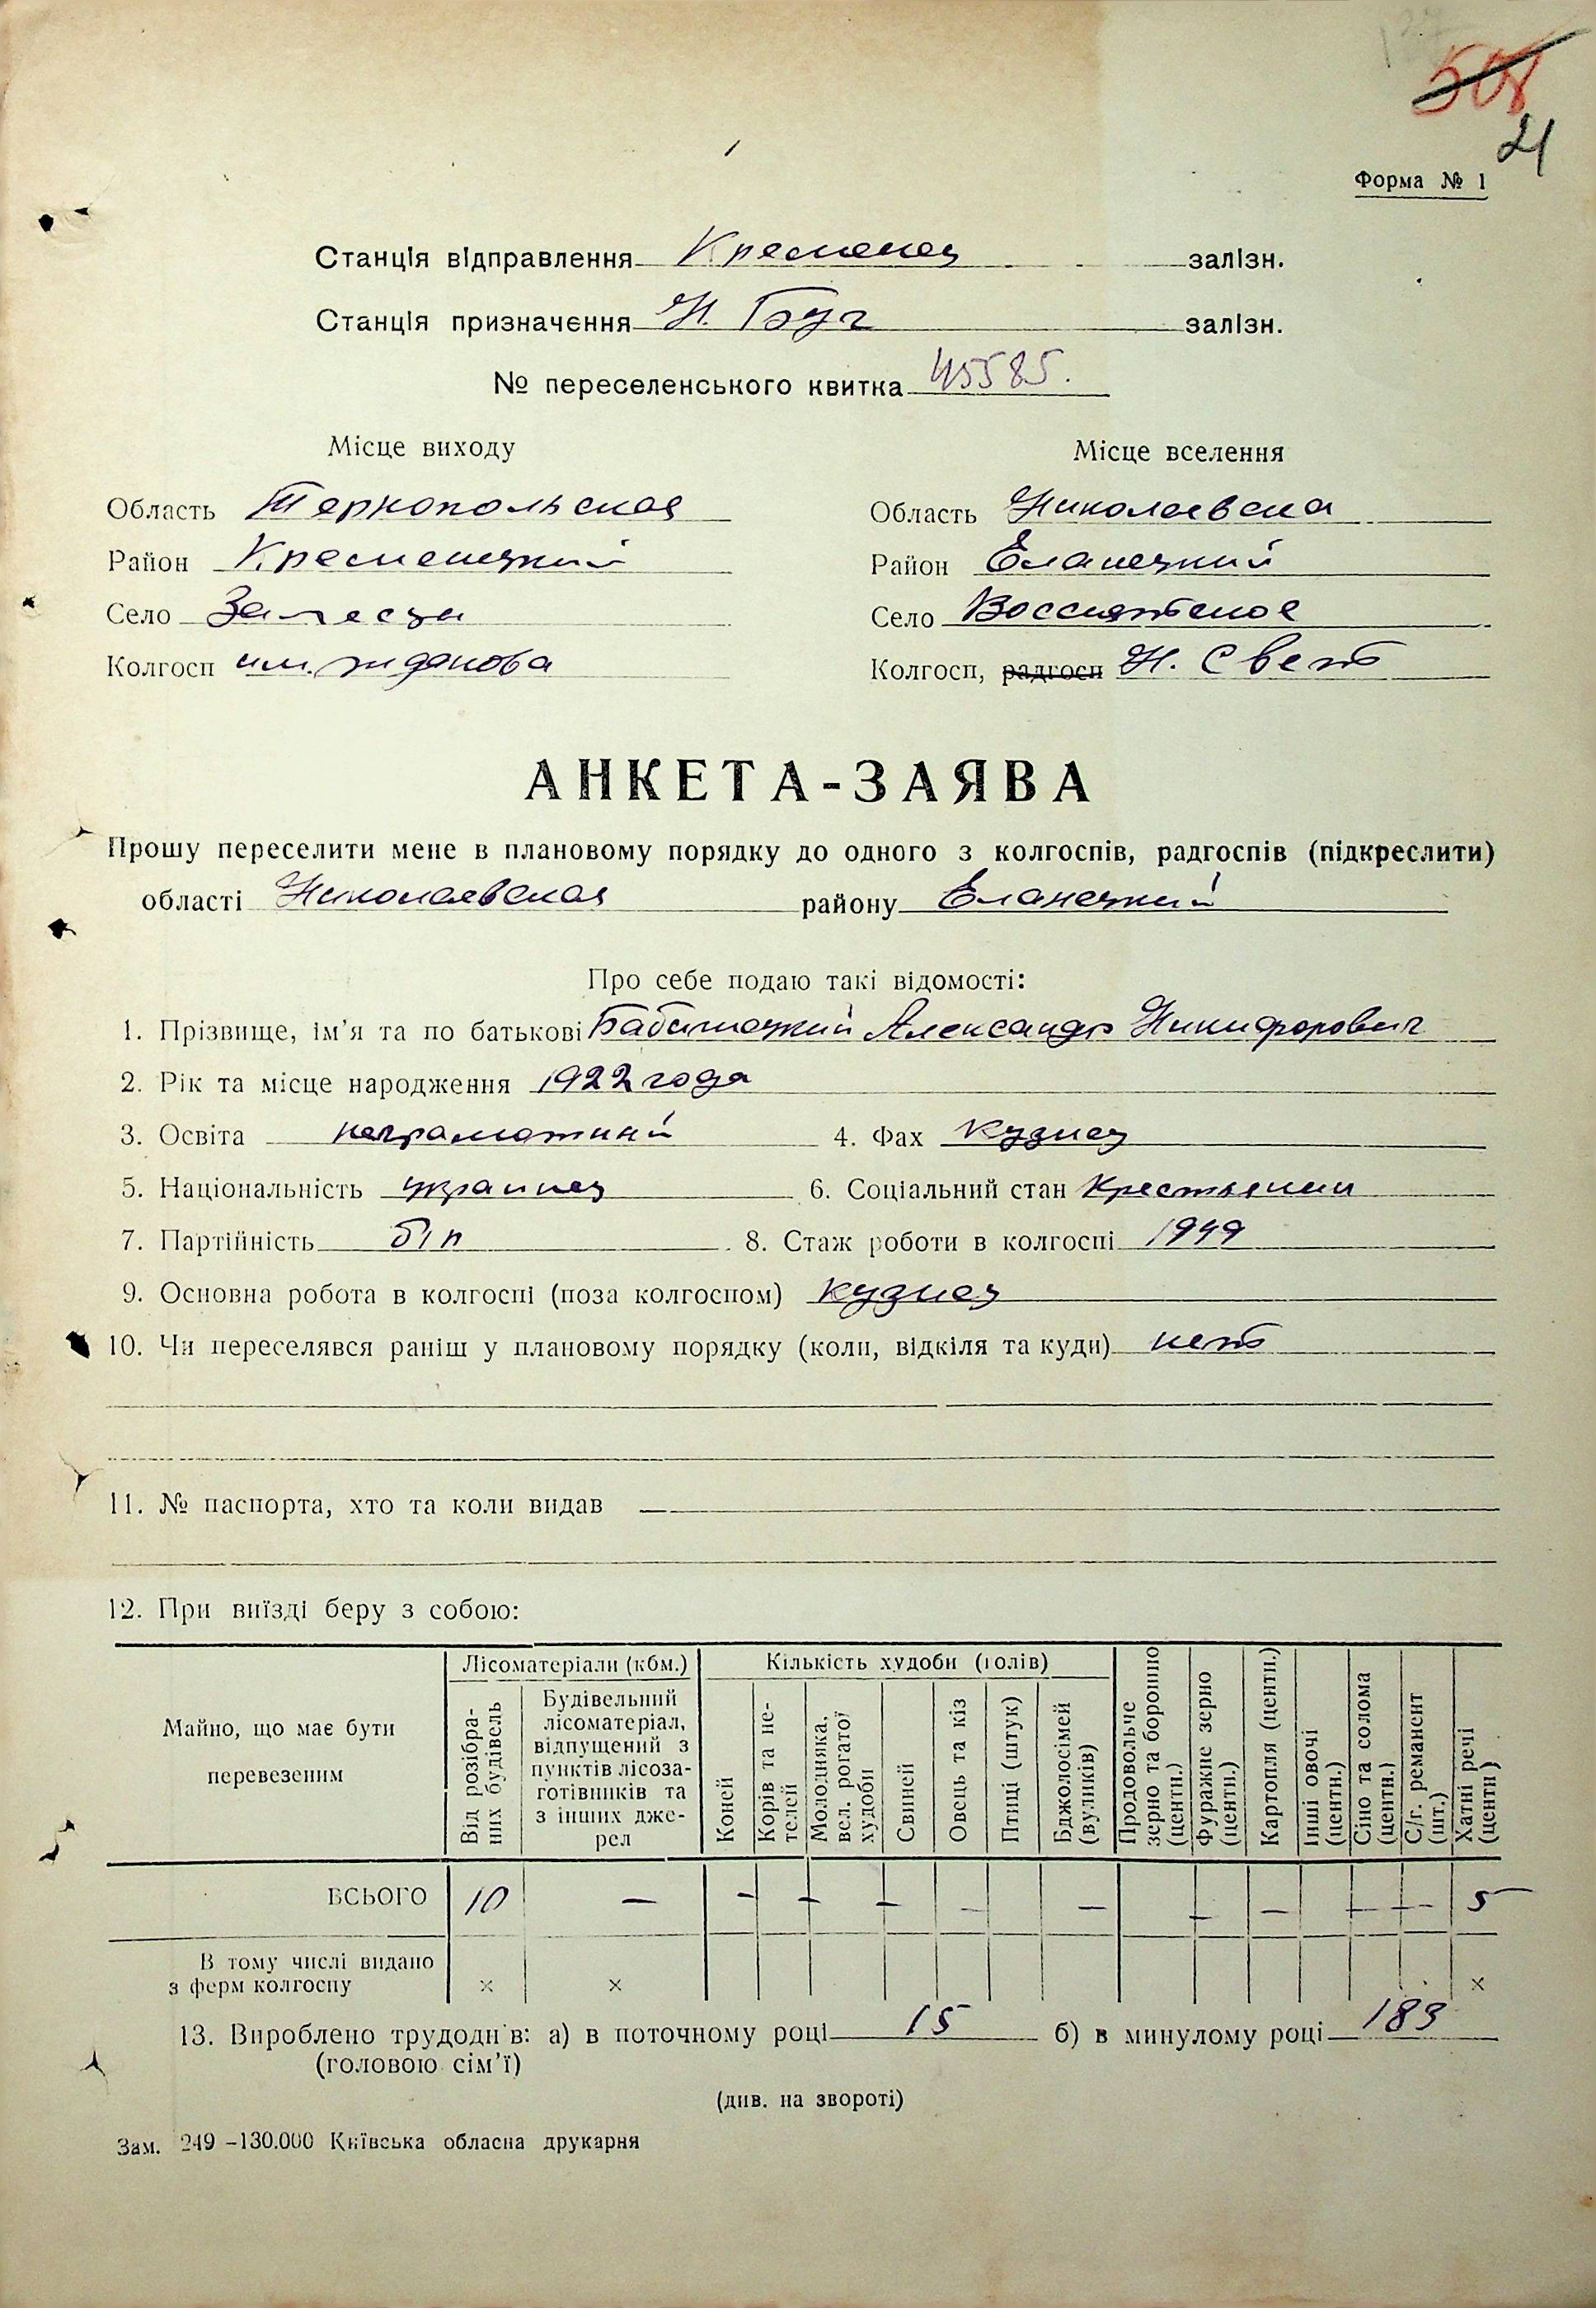 508
21
Форма № 1
Станція відправлення Кременец залізн.
Станція призначення Н. Буг залізн.
№ переселенського квитка 45585.
Місце виходу Місце вселення
Область Тернопольская Область Николаевска
Район Кременецкий Район Еланецкий
Село Залесци Село Воссиятское
Колгосп им. жданова Колгосп, радгосп Н. Свет
АНКЕТА-ЗАЯВА
Прошу переселити мене в плановому порядку до одного з колгоспів, радгоспів (підкреслити)
області Николаевская району Еланецкий
Про себе подаю такі відомості:
1. Прізвище, ім'я та по батькові Александр Никифорович
2. Рік та місце народження 1922 года
3. Освіта неграмотний 4. Фах кузнец
5. Національність украинец 6. Соціальний стан Крестьянин
7. Партійність б/п 8. Стаж роботи в колгоспі 1949
9. Основна робота в колгоспі (поза колгоспом) кузнец
10. Чи переселявся раніш у плановому порядку (коли, відкіля та куди) нет
11. № паспорта, хто та коли видав
12. При виїзді беру з собою:
Майно, що має бути перевезеним
Лісоматеріали (кбм.)
Від розібраних будівель
Будівельний лісоматеріал, відпущений з пунктів лісозаготівників та з інших джерел
Кількість худоби (голів)
Коней
Корів та нетелей
Молодняка, вел. рогатої худоби
Свиней
Овець та кіз
Птиці (штук)
Бджолосімей (вуликів)
Продовольче зерно та борошно (центн.)
Фуражне зерно (центн.)
Картопля (центн.)
Інші овочі (центн.)
Сіно та солома (центн.)
С/г. реманент (шт.)
Хатні речі (центн)
ВСЬОГО 10 — — — — — — — — — — 5
В тому числі видано
з ферм колгоспу × × ×
13. Вироблено трудоднів: а) в поточному році 15 б) в минулому році 183
(головою сім'ї)
(див. на звороті)
Зам. 249 -130.000 Київська обласна друкарня